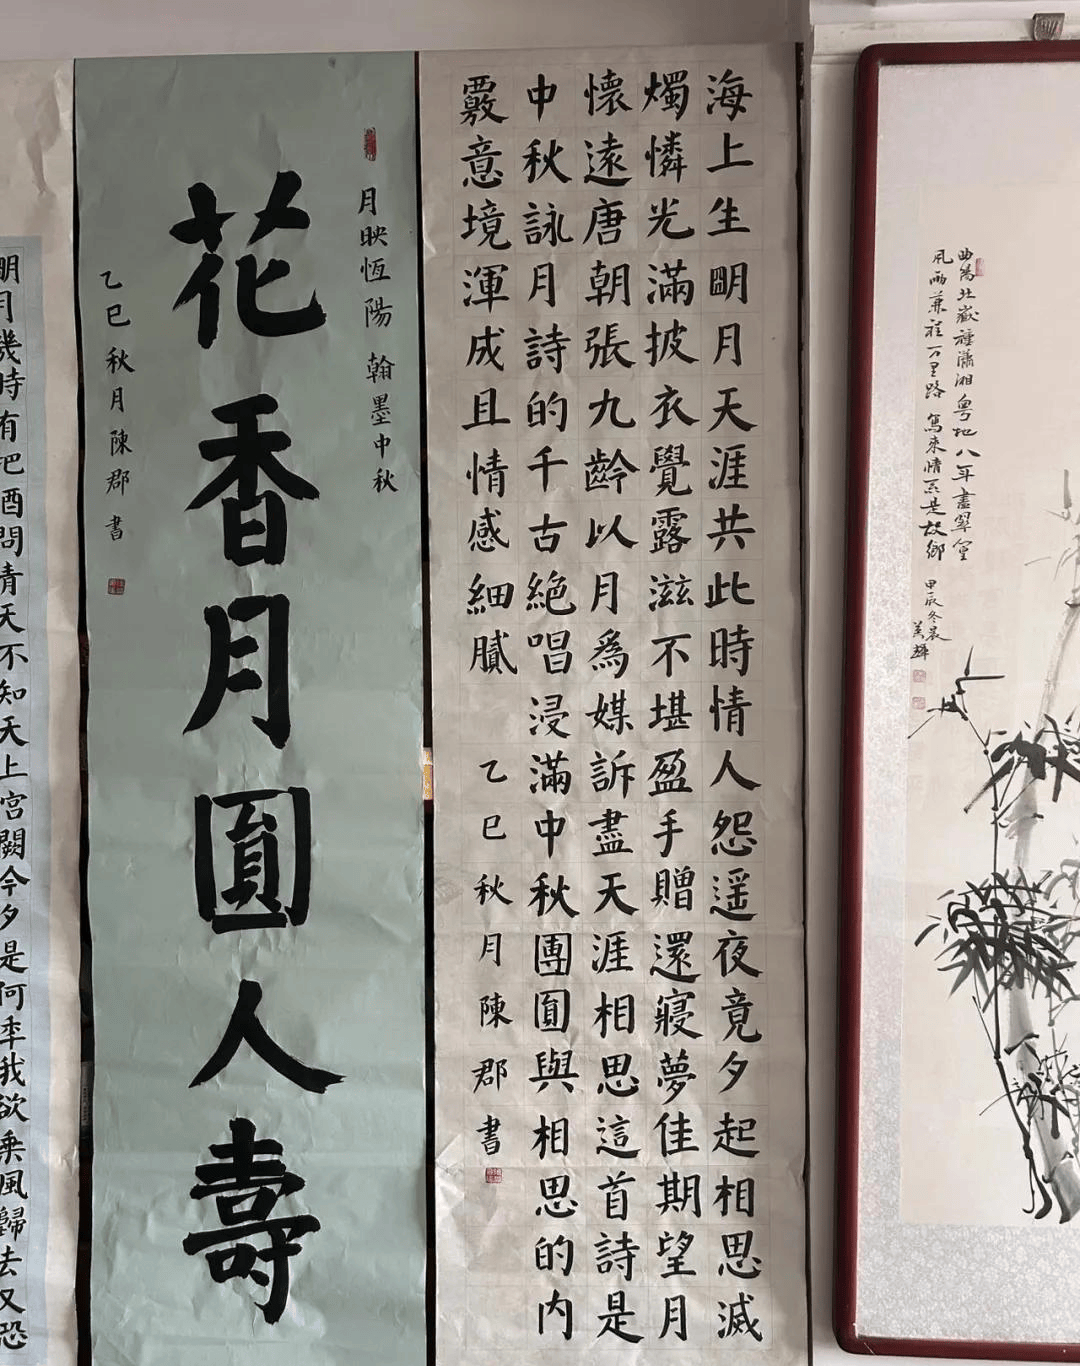 曲陽北嶽種瀟湘粤地八年畫翠篁
風雨兼程万里路寫來情系是故鄉
甲辰冬晨
海上生朙月天涯共此時情人怨遥夜竟夕起相思滅
燭憐光滿披衣覺露滋不堪盈手贈還寢夢佳期望月
懷遠唐朝張九齡以月爲媒訴盡天涯相思這首詩是
中秋詠月詩的千古絶唱浸滿中秋團圓與相思的内
覈意境渾成且情感細膩
乙巳秋月陳郡書
月映恆陽 翰墨中秋
花香月圓人壽
乙巳秋月陳郡書
明月幾時有把酒問青天不知天上宮闕今夕是何秊我欲乘風歸去又恐